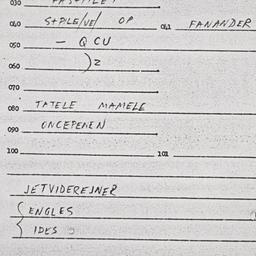 030
040 S+PILE/VE/ OP 041 FANANDER
050 - Q CU
060 )2
070
080 TATELE MAMELE
090 ONCEPENEN
100 101
JETVIDEREJNER
{ ENGLES
IDES